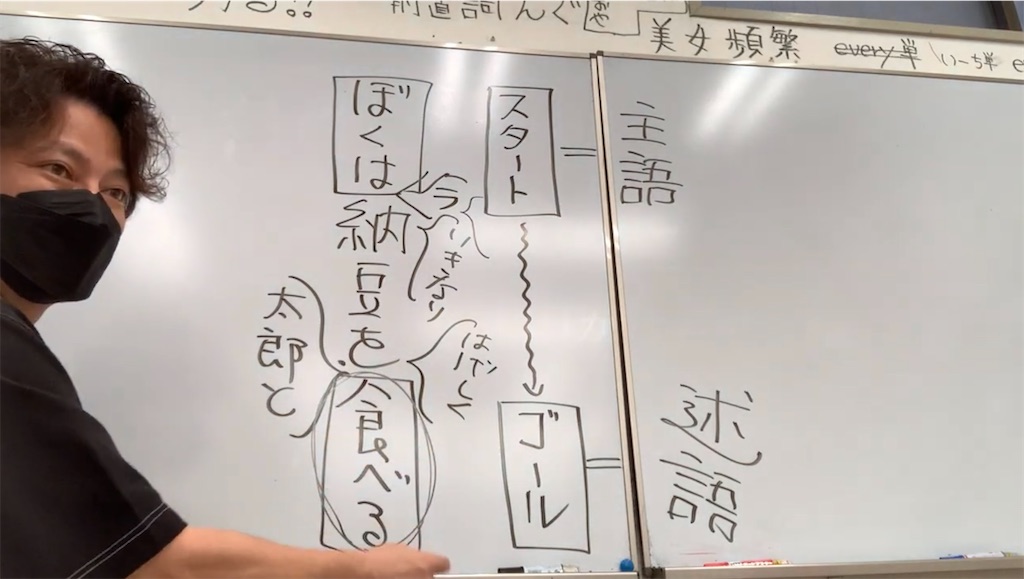 美女頻繁 every単 いーち単
主語
述語
スタート
ゴール
ぼくは納豆を食べる
今
いきなり
はげしく
太郎と